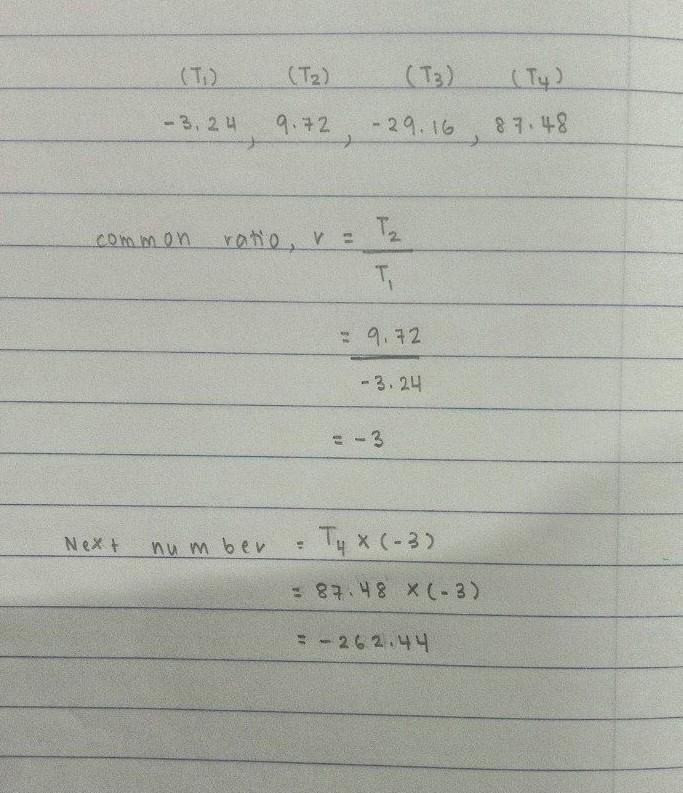 (T₁) (T₂) (T₃) (T₄)
-3.24, 9.72, -29.16, 87.48
common ratio, r = T₂
T₁
= 9.72
-3.24
= -3
Next number = T₄ × (-3)
= 87.48 × (-3)
= -262.44